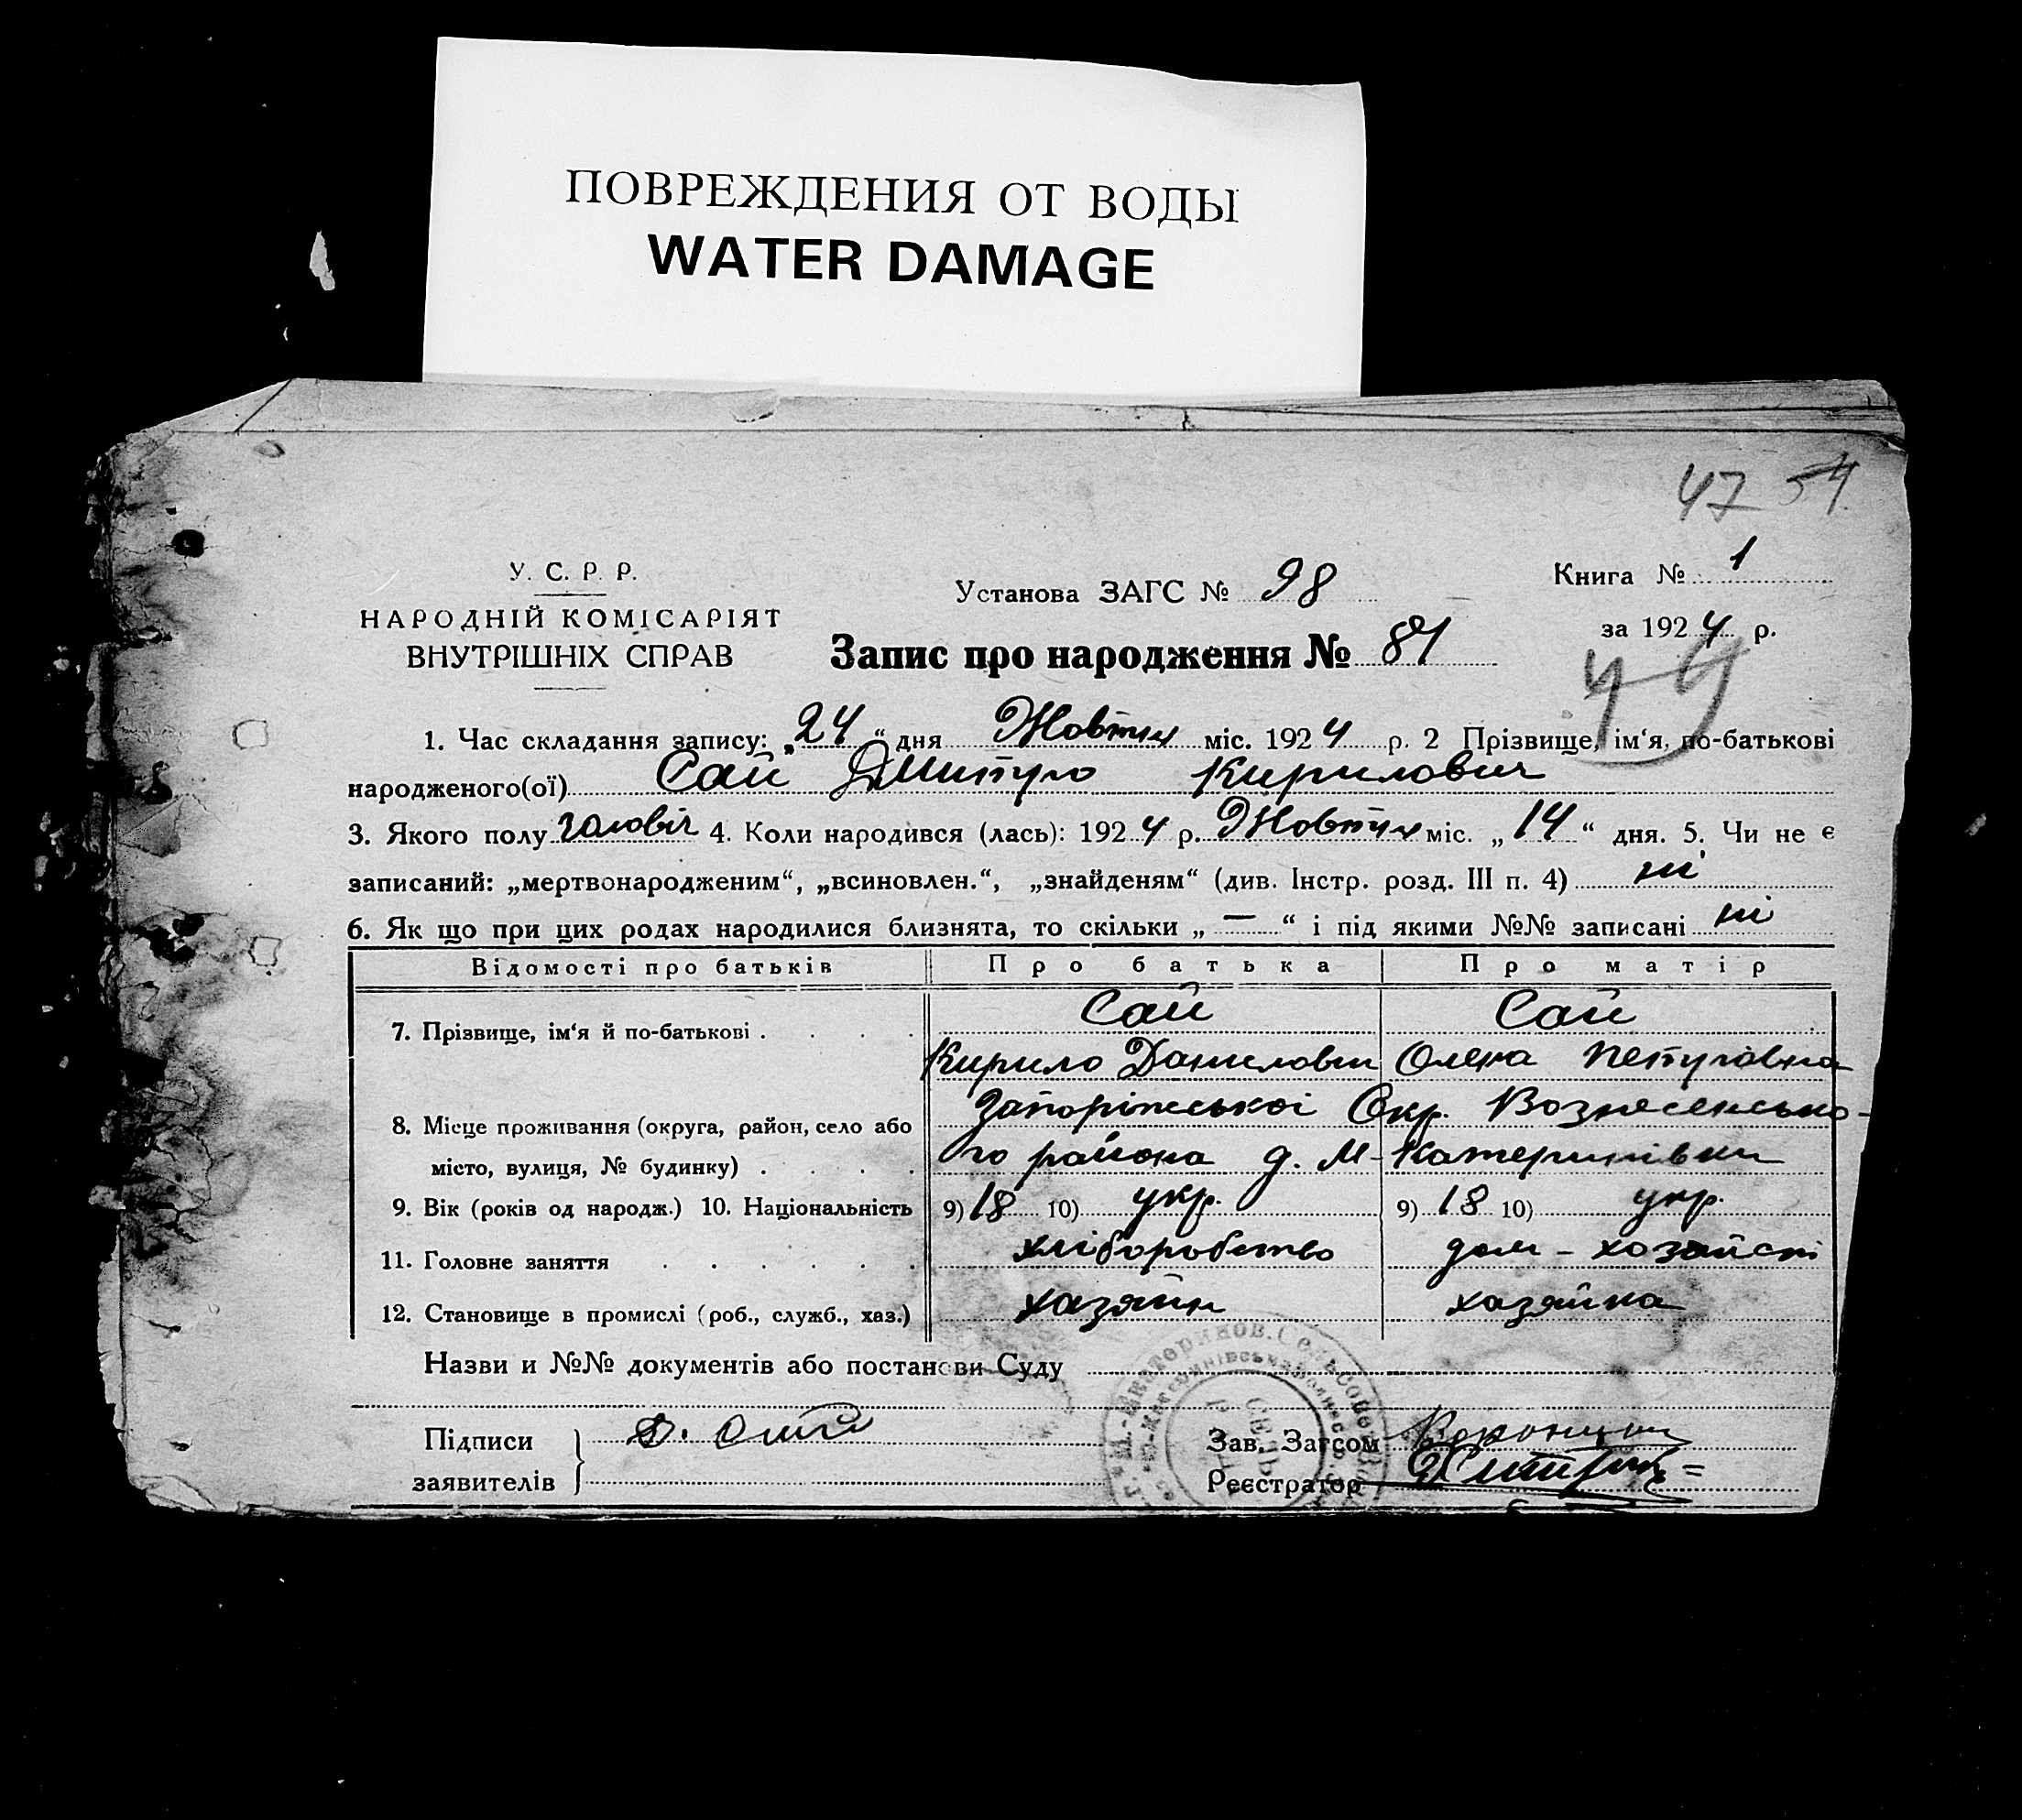 ПОВРЕЖДЕНИЯ ОТ ВОДЫ
WATER DAMAGE
47 54
У. С. Р. Р.
НАРОДНІЙ КОМІСАРІЯТ
ВНУТРІШНІХ СПРАВ
Установа ЗАГС № 98
Книга № 1
за 1924 р.
Запис про народження № 81
49
1. Час складання запису: „24“ дня Жовтня міс. 1924 р. 2 Прізвище, ім‘я, по-батькові
народженого(ої) Сай Дмитро Кирилович
3. Якого полу чоловіч 4. Коли народився (лась): 1924 р. Жовтня міс. „14“ дня. 5. Чи не є
записаний: „мертвонародженим“, „всиновлен.“, „знайденям“ (див. Інстр. розд. III п. 4) ні
6. Як що при цих родах народилися близнята, то скільки „—“ і під якими №№ записані ні
Відомості про батьків Про батька Про матір
7. Прізвище, ім‘я й по-батькові . . . . Сай Сай
Кирило Данилович Олена Петрівна
8. Місце проживання (округа, район, село або Запоріжської Окр. Вознесенсько-
місто, вулиця, № будинку) . . . . го района д. М-Катеринівки
9. Вік (років од народж.) 10. Національність 9) 18 10) укр. 9) 18 10) укр.
11. Головне заняття . . . . . . хліборобство дом-хозяйст
12. Становище в промислі (роб., служб., хаз.) хазяїн хазяйка
Назви и №№ документів або постанови Суду
Підписи
заявителів
Зав. Загсом
Реєстратор